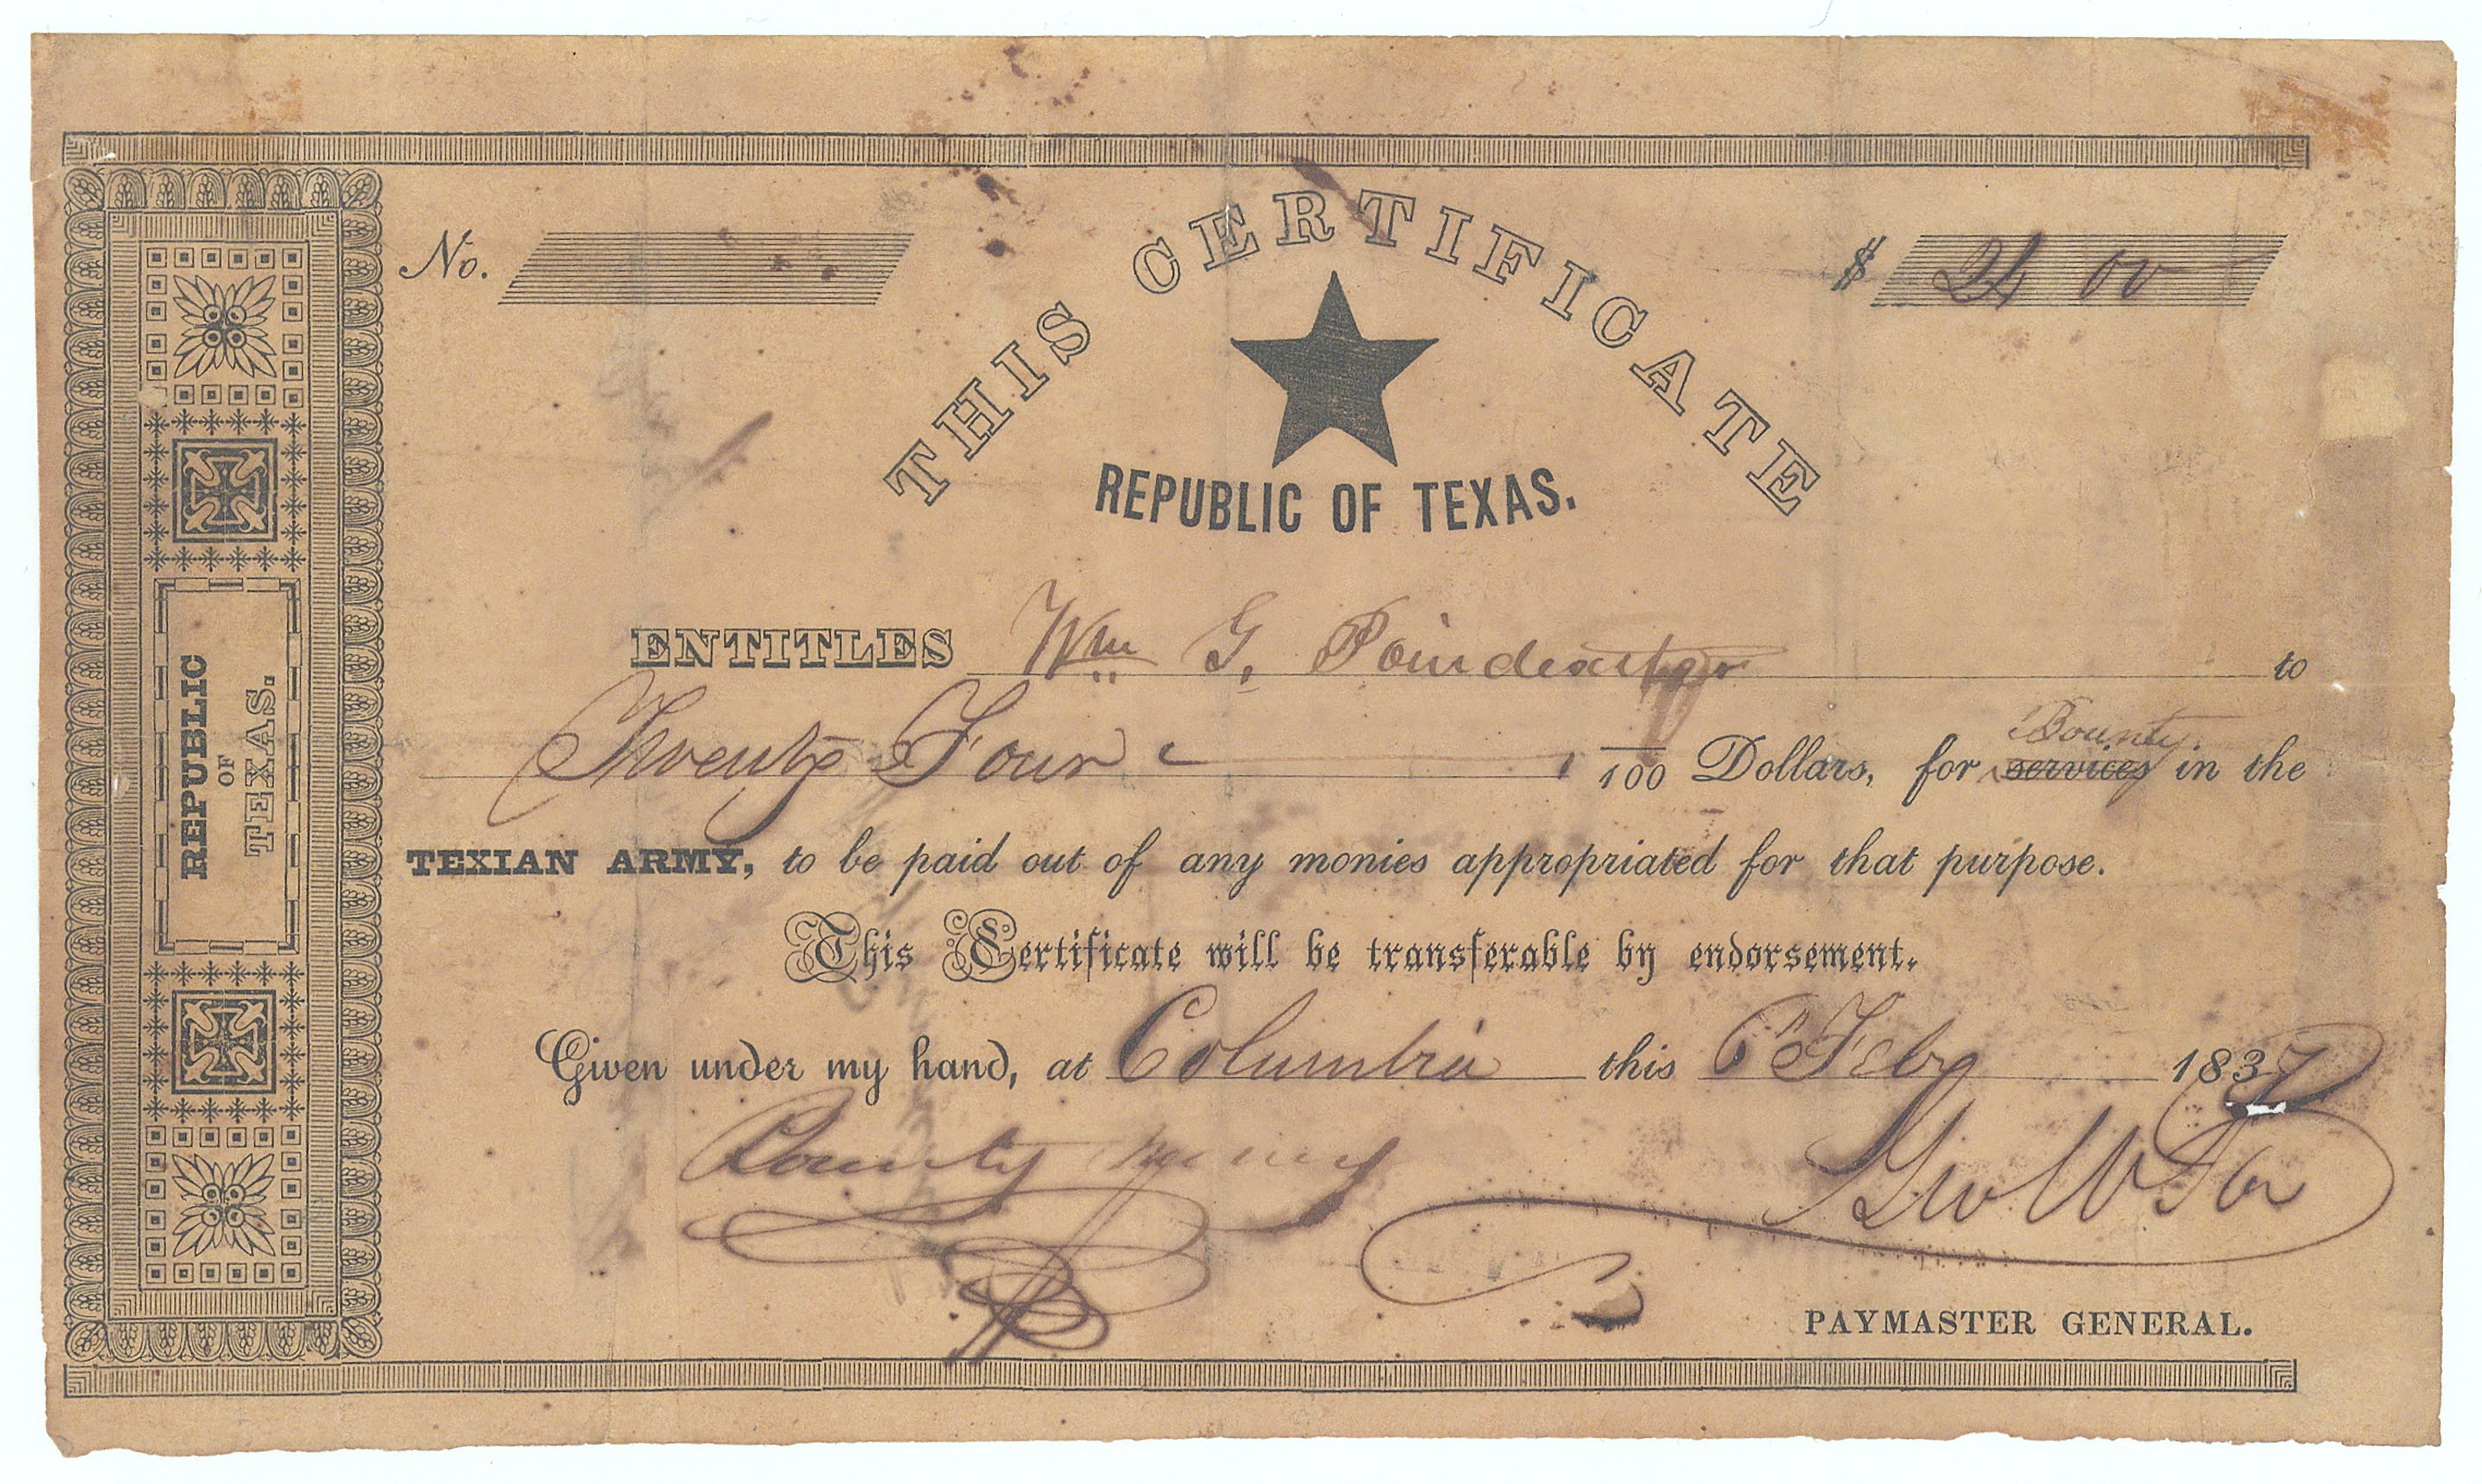 No.
$ 24 00
THIS CERTIFICATE
REPUBLIC OF TEXAS.
REPUBLIC
OF
TEXAS.
ENTITLES Wm G. Poindexter to
Twenty Four /100 Dollars, for services Bounty. in the
TEXIAN ARMY, to be paid out of any monies appropriated for that purpose.
This Certificate will be transferable by endorsement.
Given under my hand, at Columbia this 6 Feby 1837
Bounty money
Geo W Poe
PAYMASTER GENERAL.